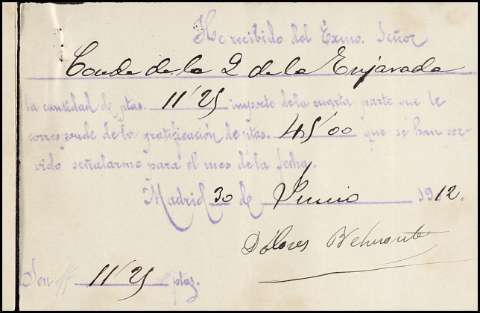 He recibido del Exmo. Señor
Conde de la Q de la Enjarada
la cantidad de ptas. 11'25 importe de la cuarta parte que le
corresponde de la gratificación de ptas. 45'00 que se han ser-
vido señalarme para el mes de la fecha.
Madrid 30 de Junio 1912.
Dolores
Son 11'25 ptas.